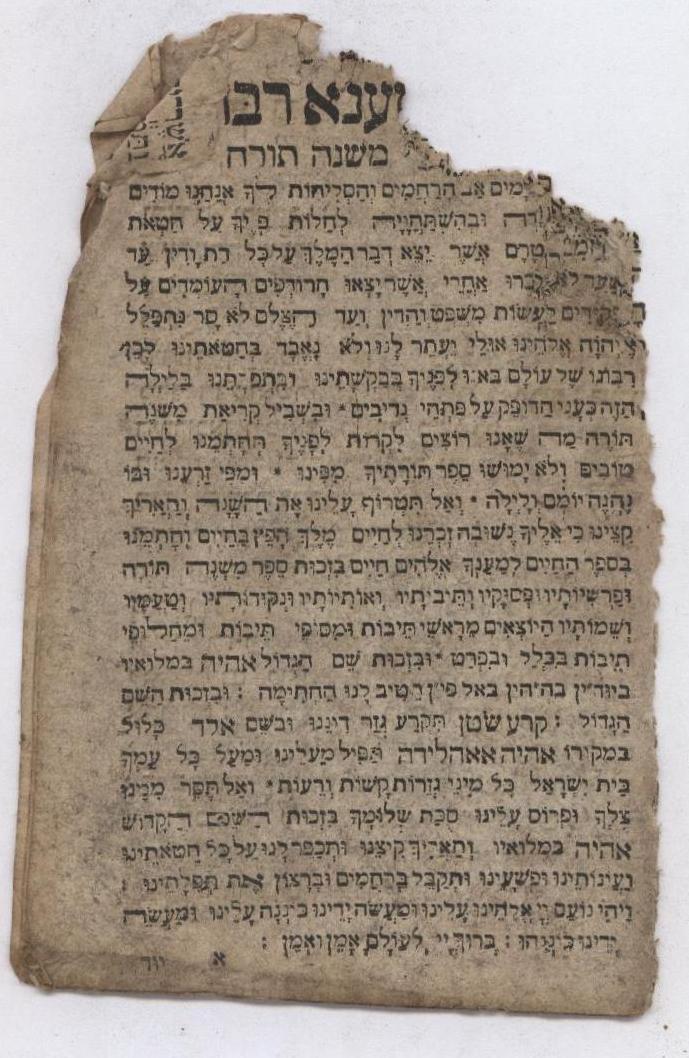 משנה תורה
אב הרחמים והסליחות לך אנחנו מודים
ובהשתחויה לחלות פניך על חטאת
טרם אשר יצא דבר המלך על כל דת ודין עד
אחרי אשר יצאו הרודפים העומדים על
לעשות משפט והדין ועד הצלם לא סר נתפלל
אלהינו אולי יעתר לנו ולא נאבד בחטאתינו לכן
רבונו של עולם באנו לפניך בבקשתינו ובתפלתנו בלילה
הזה כעני הדופק על פתחי נדיבים ובשביל קריאת משנה
תורה מה שאנו רוצים לקרות לפניך תחתמנו לחיים
טובים ולא ימושו ספר תורתיך מפינו ומפי זרענו ובו
נהגה יומם ולילה ואל תטרוף עלינו את השעה ותאריך
קצינו כי אליך נשובה זכרנו לחיים מלך חפץ בחיים וחתמנו
בספר החיים למענך אלהים חיים בזכות ספר משנה תורה
ופרשיותיו ופסוקיו ותיבותיו ואותיותיו ונקודותיו וטעמיו
ושמותיו היוצאים מראשי תיבות ומסופי תיבות ומחלופי
תיבות בכלל ובפרט ובזכות שם הגדול אהיה במלואיו
ביודין בההין באלפין הטיב לנו החתימה : ובזכות השם
הגדול : קרע שטן תקרע גזר דיננו ובשם אלד כלול
במקורו אהיה תפיל מעלינו ומעל כל עמך
בית ישראל כל מיני גזרות קשות ורעות ואל תפר ממנו
צלך ופרוס עלינו סכת שלומך בזכות השם הקדוש
אהיה במלואיו ותאריך קיצנו ותכפר לנו על כל חטאתינו
ועונותינו ופשעינו ותקבל ברחמים וברצון את תפלתינו :
ויהי נועם יי אלהינו עלינו ומעשה ידינו כוננה עלינו ומעשה
ידינו כוננהו : ברוך יי לעולם אמן ואמן :
א